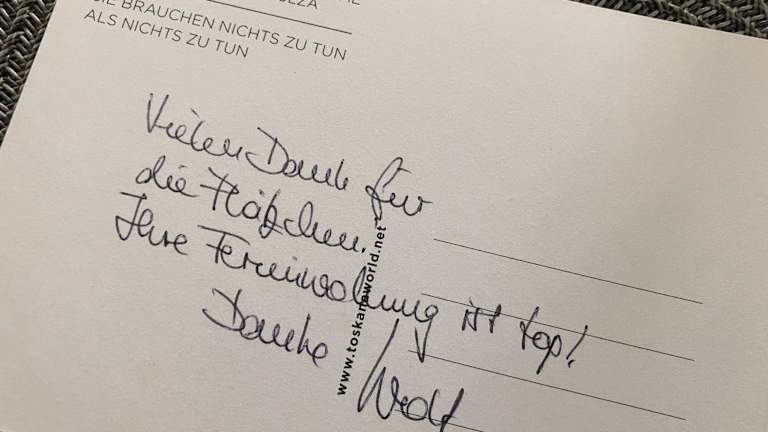 SIE BRAUCHEN NICHTS ZU TUN
ALS NICHTS ZU TUN
Vielen Dank für
die Plätzchen.
Ihre Ferienwohnung ist top!
Danke
www.toskanaworld.net